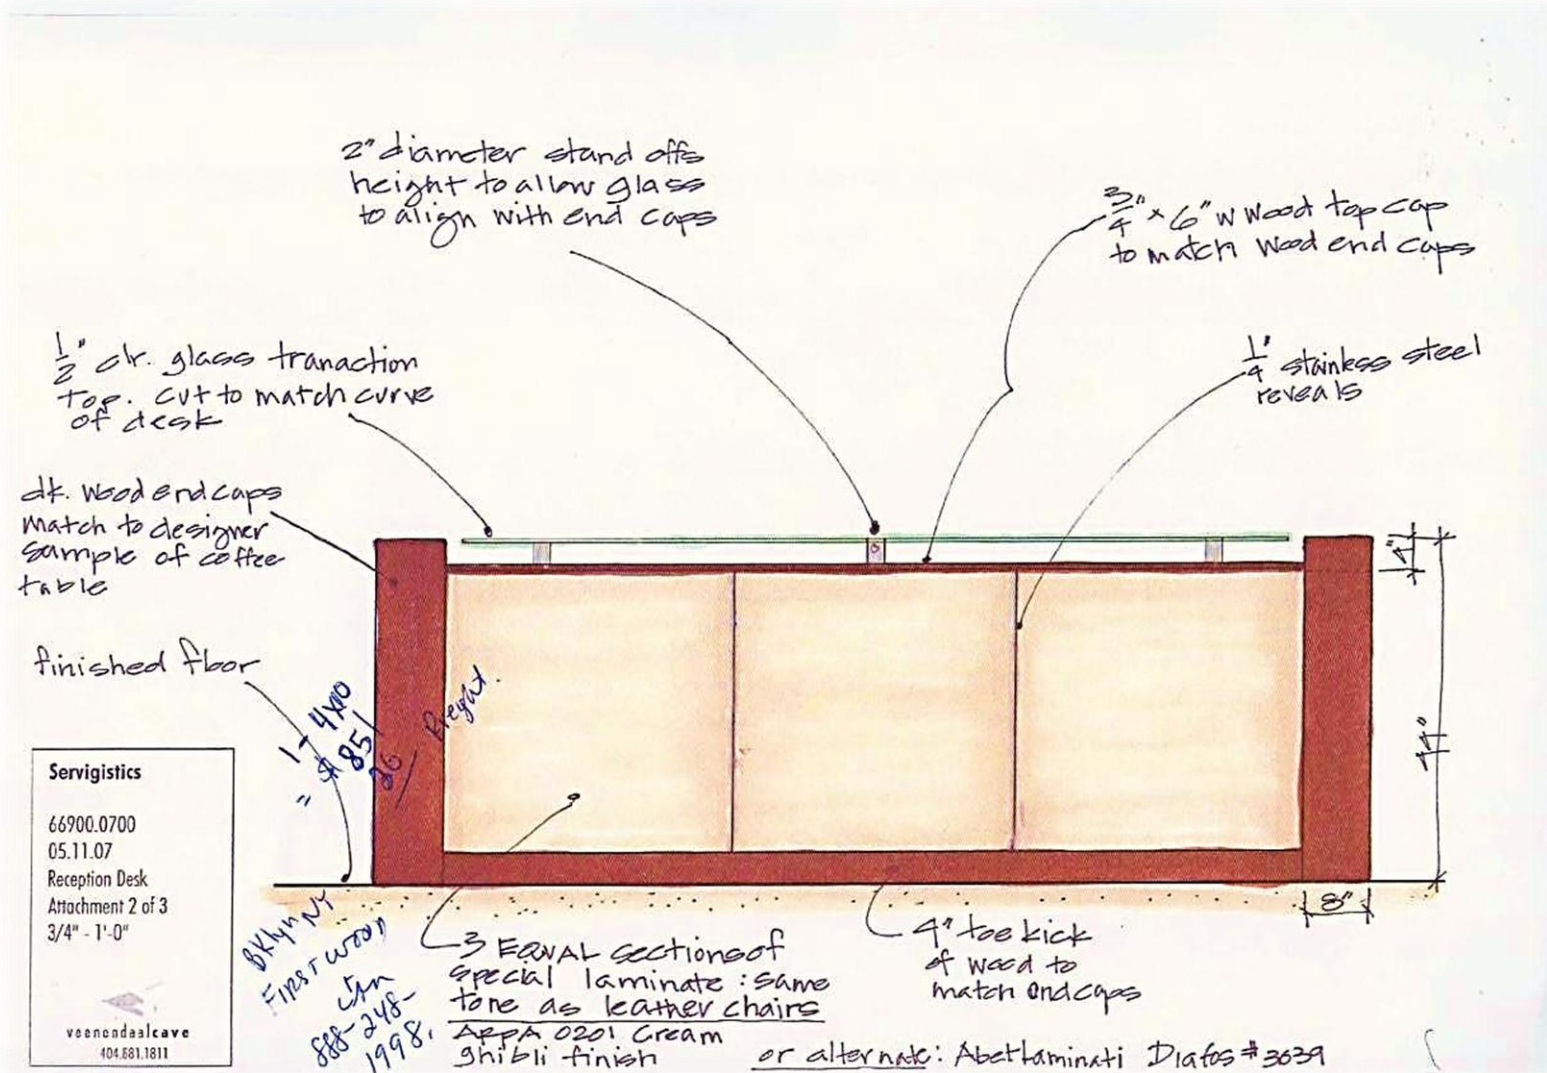 2" diameter stand offs
height to allow glass
to align with end caps
3/4" x 6" w wood top cap
to match wood end caps
1/2" clr. glass tranaction
top. cut to match curve
of desk
1/4" stainless steel
reveals
dk. wood end caps
match to designer
sample of coffee
table
finished floor
4"
44"
8"
1 - 4x10
= $ 851
26
freight.
Servigistics
66900.0700
05.11.07
Reception Desk
Attachment 2 of 3
3/4" - 1'-0"
veenendaalcave
404.681.1811
BKlyn NY
FIRST WOOD
888-248-
1998.
3 EQUAL sections of
special laminate : same
tone as leather chairs
ARPA 0201 Cream
ghibli finish
4" toe kick
of wood to
match endcaps
or alternate: Abet Laminati Diafos #3639